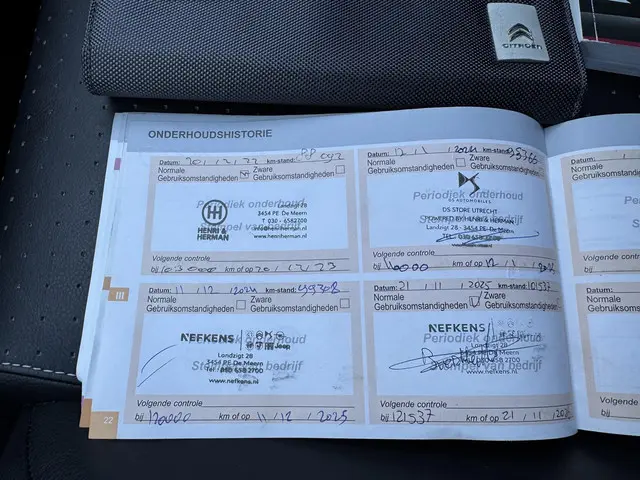 CITROËN
ONDERHOUDSHISTORIE
Datum: 20/12/22 km-stand:
Normale Gebruiksomstandigheden
Zware Gebruiksomstandigheden
Periodiek onderhoud
HENRI & HERMAN
Landzigt 28
3454 PE De Meern
T 030 - 6582700
info@henriherman.nl
www.henriherman.nl
Stempel van bedrijf
Volgende controle
bij km of op 20/12/23
Datum: 12/1/2024 km-stand: 95366
Normale Gebruiksomstandigheden
Zware Gebruiksomstandigheden
Periodiek onderhoud
DS AUTOMOBILES
DS STORE UTRECHT
POWERED BY HENRI & HERMAN
Landzigt 28 - 3454 PE De Meern
Volgende controle
bij 110000 km of op 12/1/2025
Datum: 11/12/2024 km-stand: 99308
Normale Gebruiksomstandigheden
Zware Gebruiksomstandigheden
NEFKENS
Jeep
Periodiek onderhoud
Landzigt 28
3454 PE De Meern
Tel: 030 658 2700
www.nefkens.nl
Stempel van bedrijf
Volgende controle
bij 120000 km of op 11/12/2025
Datum: 21/11/2025 km-stand: 101537
Normale Gebruiksomstandigheden
Zware Gebruiksomstandigheden
NEFKENS
Periodiek onderhoud
Landzigt 28
3454 PE De Meern
Tel: 030 658 2700
www.nefkens.nl
Stempel van bedrijf
Volgende controle
bij 121537 km of op 21/11/202
22